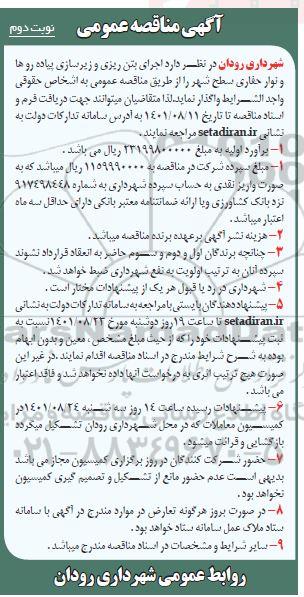 آگهی مناقصه عمومی
نوبت دوم
شهرداری رودان در نظر دارد اجرای بتن ریزی و زیرسازی پیاده رو ها
و نوار حفاری سطح شهر را از طریق مناقصه عمومی به اشخاص حقوقی
واجد الشرایط واگذار نماید.لذا متقاضیان میتوانند جهت دریافت فرم و
اسناد مناقصه تا تاریخ ۱۴۰۱/۰۸/۱۱ به آدرس سامانه تدارکات دولت به
نشانی setadiran.ir مراجعه نمایند.
۱- برآورد اولیه به مبلغ ۲۳۱۹۹۸۰۰۰۰۰ ریال می باشد.
۱- مبلغ سپرده شرکت در مناقصه به ۱۱۵۹۹۹۰۰۰۰ ریال میباشد که به
صورت واریز نقدی به حساب سپرده شهرداری به شماره ۹۱۷۴۹۸۴۴۸
نزد بانک کشاورزی ویا ارائه ضمانتنامه معتبر بانکی دارای حداقل سه ماه
اعتبار میباشد.
۲- هزینه نشر آگهی برعهده برنده مناقصه میباشد.
۳- چنانچه برندگان اول و دوم و سوم حاضر به انعقاد قرارداد نشوند
سپرده آنان به ترتیب اولویت به نفع شهرداری ضبط خواهد شد.
۴- شهرداری در رد یا قبول هر یک از پیشنهادات مختار است.
۵- پیشنهاددهندگان بایستی بامراجعه به سامانه تدارکات دولت به نشانی
setadiran.ir تا ساعت ۱۹ روز دوشنبه مورخ ۱۴۰۱/۰۸/۲۳ نسبت به
ثبت پیشنهادات خود را که از حیث مبلغ مشخص ، معین و بدون ابهام
بوده به شرح شرایط مندرج در اسناد مناقصه اقدام نمایند .در غیر این
صورت هیچ ترتیب اثری به درخواست آنها داده نخواهد شد و فاقد اعتبار
می باشد.
۶- پیشنهادات رسیده ساعت ۱۴ روز سه شنبه ۱۴۰۱/۰۸/۲۴ در
کمیسیون معاملات که در محل شهرداری رودان تشکیل میگردد
بازگشایی و قرائت میشود.
۷- حضور شرکت کنندگان در روز برگزاری کمیسیون مجاز می باشد
بدیهی است عدم حضور مانع از تشکیل و تصمیم گیری کمیسیون
نخواهد بود.
۸- در صورت بروز هرگونه تعارض در موارد مندرج در آگهی با سامانه
ستاد ملاک عمل سامانه ستاد خواهد بود.
۹- سایر شرایط و مشخصات در اسناد مناقصه مندرج میباشد.
روابط عمومی شهرداری رودان